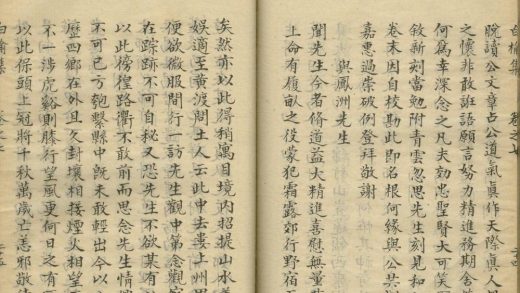 白榆集 卷之七
脫讀公文章占公道氣真作天際真人
之懷非敢誑語願言努力精進務期舍
何為幸深念之凡夫効忠聖賢大可笑
敘新刻當勉附青雲忽思先生刻見和
卷末因自校勘此即名根何緣與公共
嘉惠過崇破例登拜敬謝
與鳳洲先生
聞先生今者脩道益大精進喜慰無量
土命有履畝之役蒙犯霜露郊行野宿
矣然亦以此得稍寓目境内招提山水
娛適至黃渡問土人云此中去婁上州
便欲微服間行一訪先生觀中第念觀
在踪跡不可自秘又恐先生不欲其有
以此徬徨路衢不敢前而思念先生情
不可已方匏繫縣中既未敢輕出今以
歷四鄉在外且久封壤相接煙火相望
不一涉虎谿則膝行望風更何日之有
以此保頭上冠將千秋萬歲亡恙邪敬
白榆集